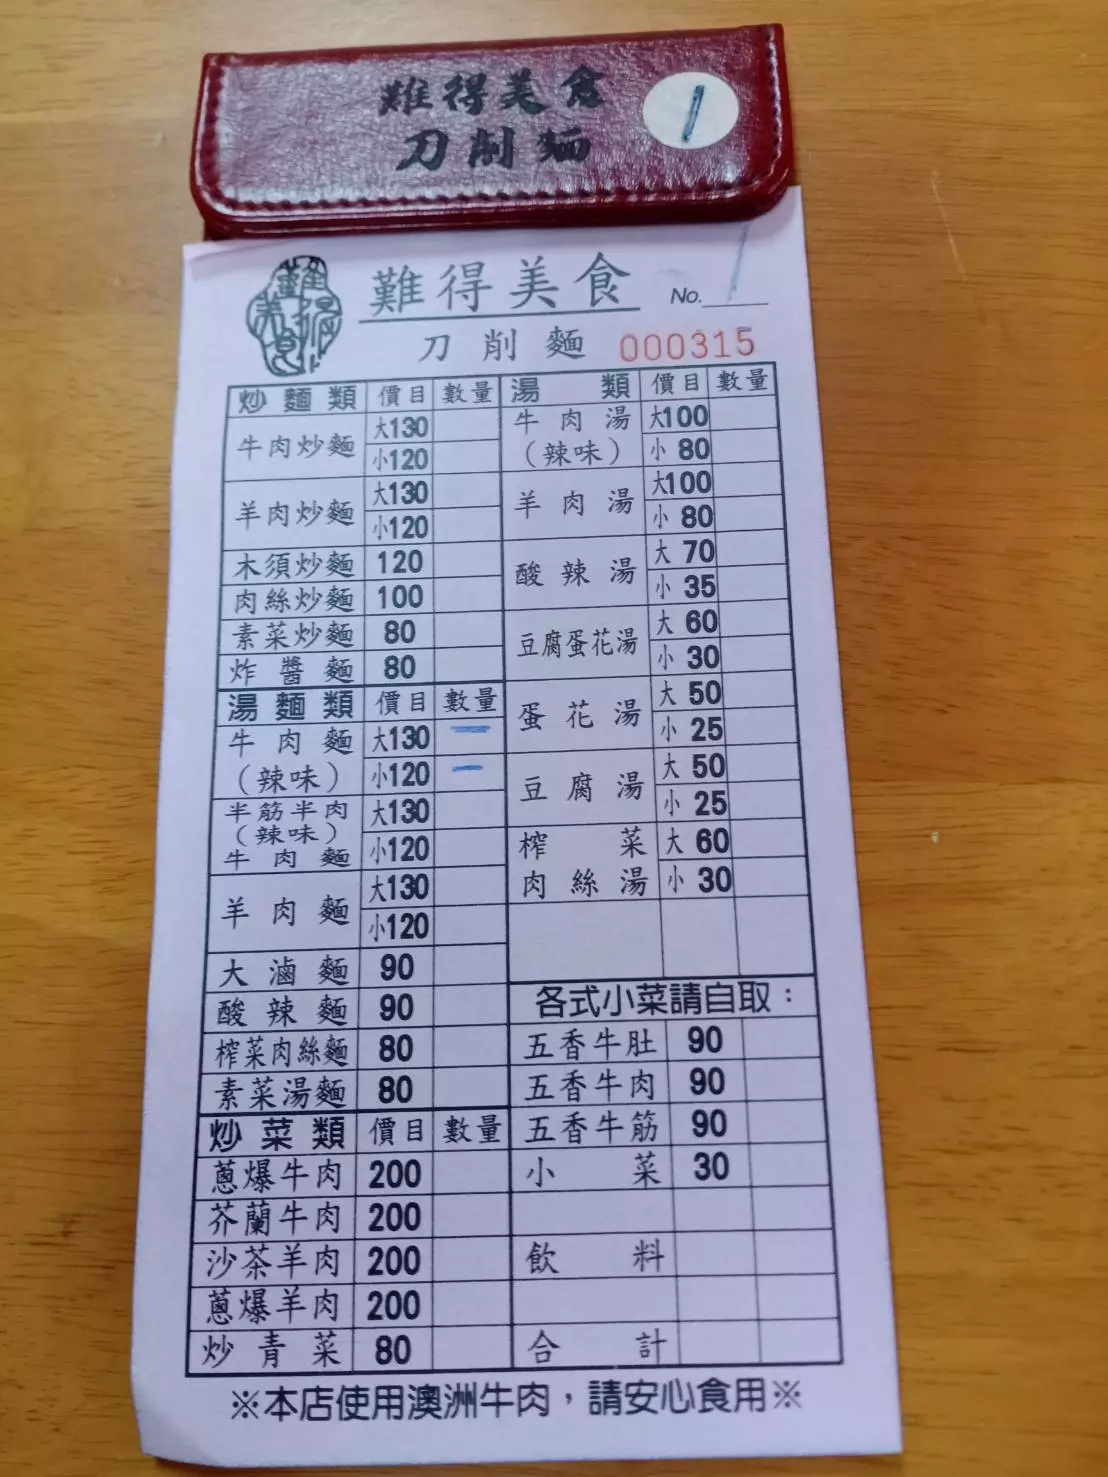 難得美食
刀削麵
1
難得美食
No. 1
刀削麵
000315
炒麵類 價目 數量
牛肉炒麵 大130
小120
羊肉炒麵 大130
小120
木須炒麵 120
肉絲炒麵 100
素菜炒麵 80
炸醬麵 80
湯麵類 價目 數量
牛肉麵 大130 一
(辣味) 小120 一
半筋半肉 大130
(辣味)
牛肉麵 小120
羊肉麵 大130
小120
大滷麵 90
酸辣麵 90
榨菜肉絲麵 80
素菜湯麵 80
炒菜類 價目 數量
蔥爆牛肉 200
芥蘭牛肉 200
沙茶羊肉 200
蔥爆羊肉 200
炒青菜 80
湯類 價目 數量
牛肉湯 大100
(辣味) 小80
羊肉湯 大100
小80
酸辣湯 大70
小35
豆腐蛋花湯 大60
小30
蛋花湯 大50
小25
豆腐湯 大50
小25
榨菜 大60
肉絲湯 小30
各式小菜請自取：
五香牛肚 90
五香牛肉 90
五香牛筋 90
小菜 30
飲料
合計
※本店使用澳洲牛肉，請安心食用※